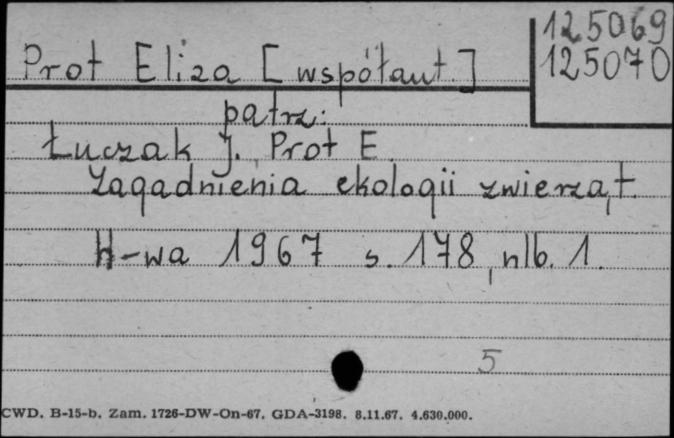 125069
125070
Prot Eliza [współaut.]
patrz:
Łuczak J., Prot E.
Zagadnienia ekologii zwierząt.
W-wa 1967 s. 178, nlb. 1.
5
CWD. B-15-b. Zam. 1726-DW-On-67. GDA-3198. 8.11.67. 4.630.000.